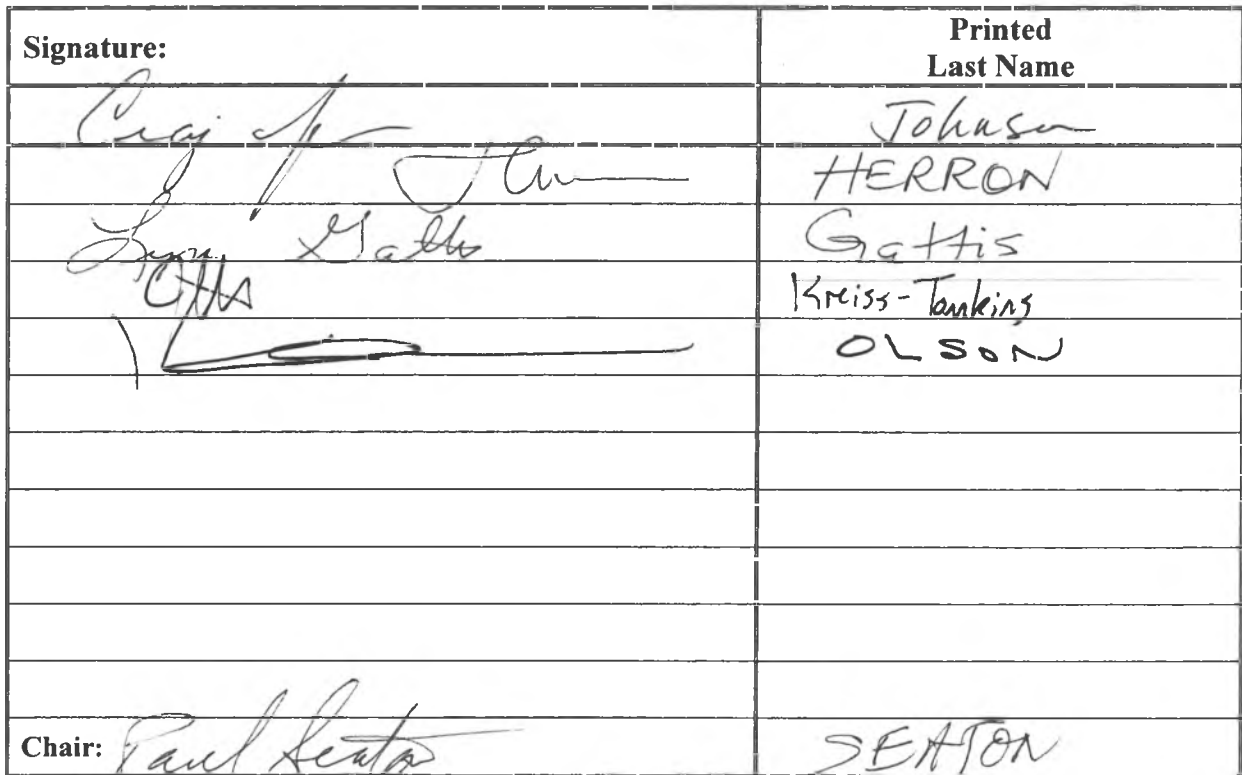 Signature: Printed
Last Name
Craig Johnson
HERRON
Lynn Gattis Gattis
Kreiss-Tomkins
OLSON
Chair: Paul Seaton SEATON